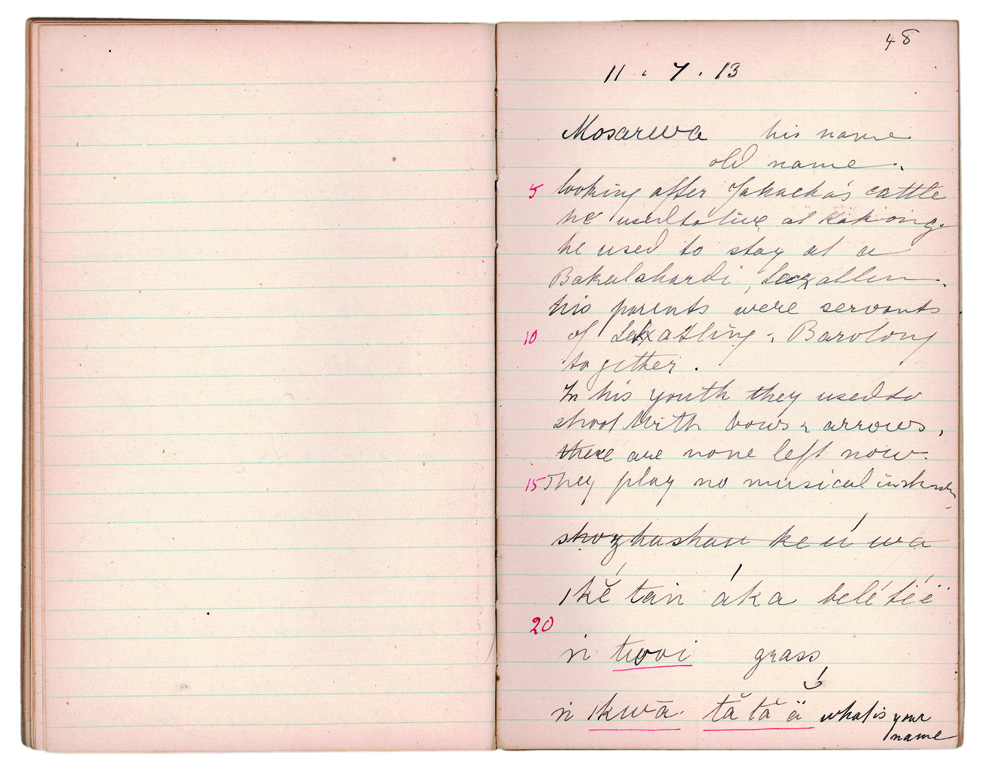 48
11 . 7 . 13
Mosarewa his name
old name.
5 looking after Jakaeka's cattle
he used to live at Kakong.
he used to stay at a
Bakalahardi,
his parents were servants
10 of , Barolong
together.
In his youth they used to
shoot with bows & arrows,
there are none left now.
15 They play no musical
ke ú wa
ı kĕ tan áka belé
20
ń twoi grass
ń ıkwā. tă tă ä what is your
name